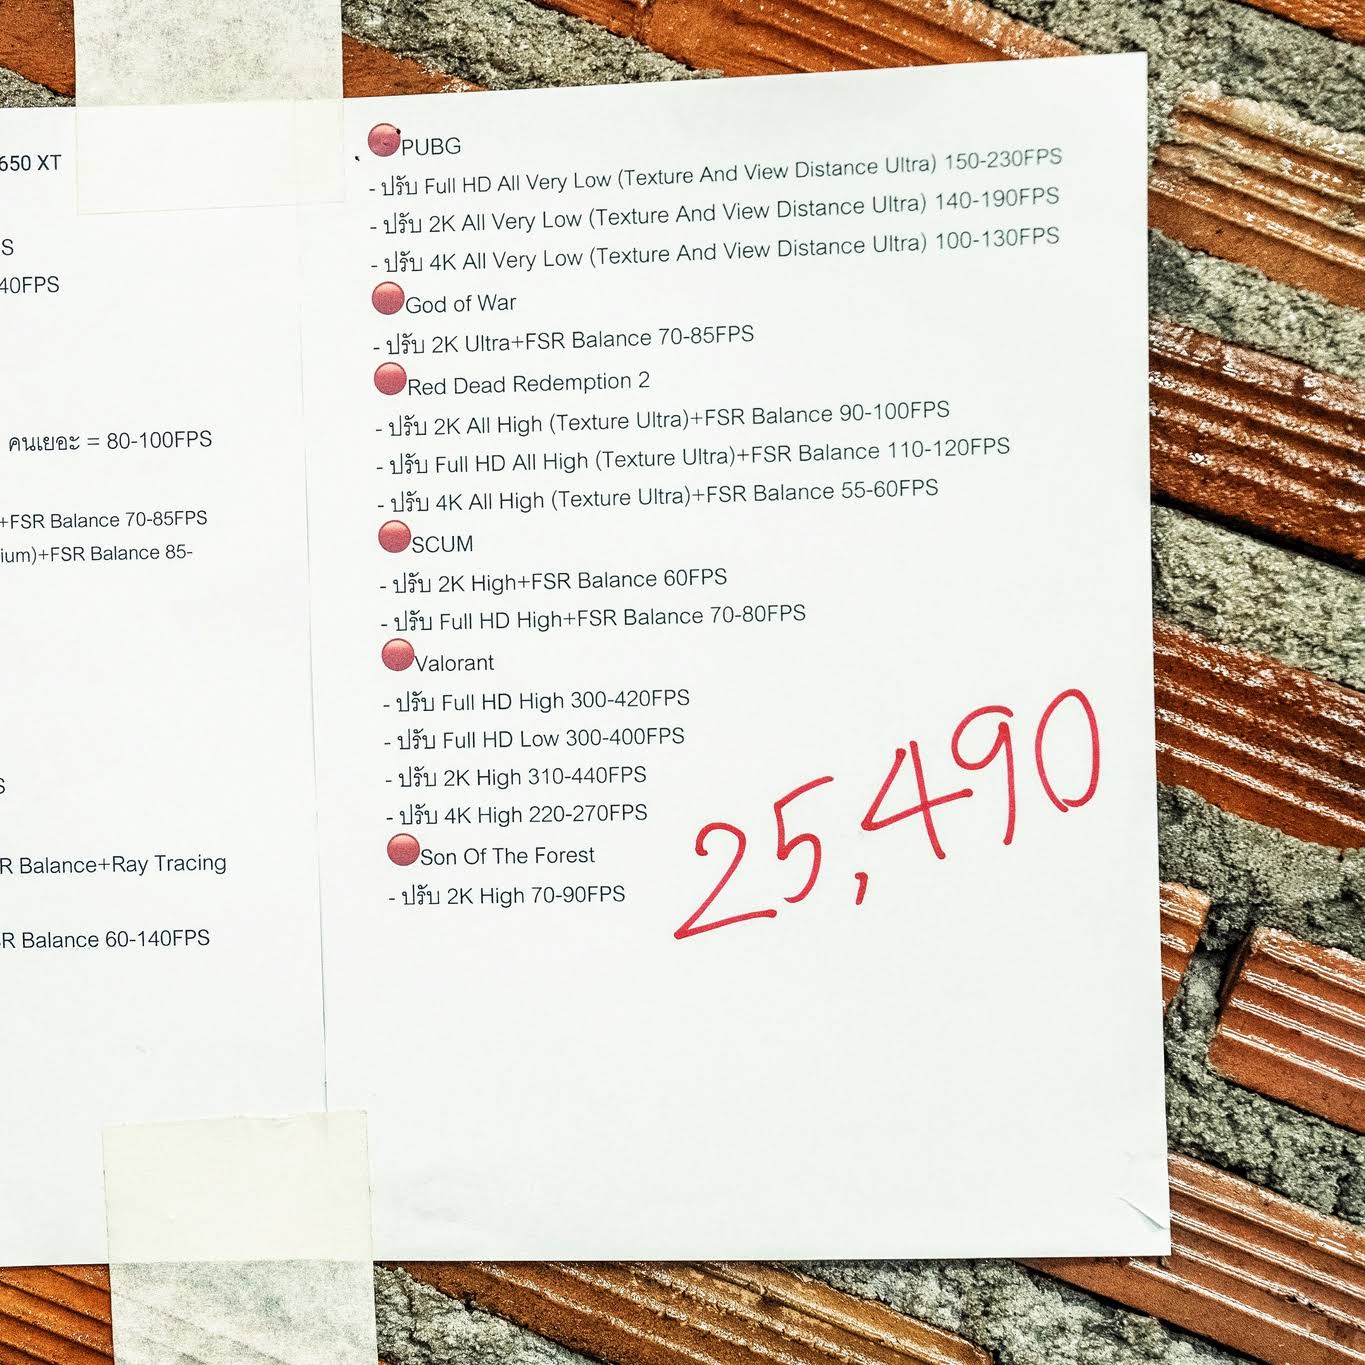 650 XT
S
40FPS
คนเยอะ = 80-100FPS
+FSR Balance 70-85FPS
ium)+FSR Balance 85-
S
R Balance+Ray Tracing
R Balance 60-140FPS
PUBG
- ปรับ Full HD All Very Low (Texture And View Distance Ultra) 150-230FPS
- ปรับ 2K All Very Low (Texture And View Distance Ultra) 140-190FPS
- ปรับ 4K All Very Low (Texture And View Distance Ultra) 100-130FPS
God of War
- ปรับ 2K Ultra+FSR Balance 70-85FPS
Red Dead Redemption 2
- ปรับ 2K All High (Texture Ultra)+FSR Balance 90-100FPS
- ปรับ Full HD All High (Texture Ultra)+FSR Balance 110-120FPS
- ปรับ 4K All High (Texture Ultra)+FSR Balance 55-60FPS
SCUM
- ปรับ 2K High+FSR Balance 60FPS
- ปรับ Full HD High+FSR Balance 70-80FPS
Valorant
- ปรับ Full HD High 300-420FPS
- ปรับ Full HD Low 300-400FPS
- ปรับ 2K High 310-440FPS
- ปรับ 4K High 220-270FPS
Son Of The Forest
- ปรับ 2K High 70-90FPS
25,490